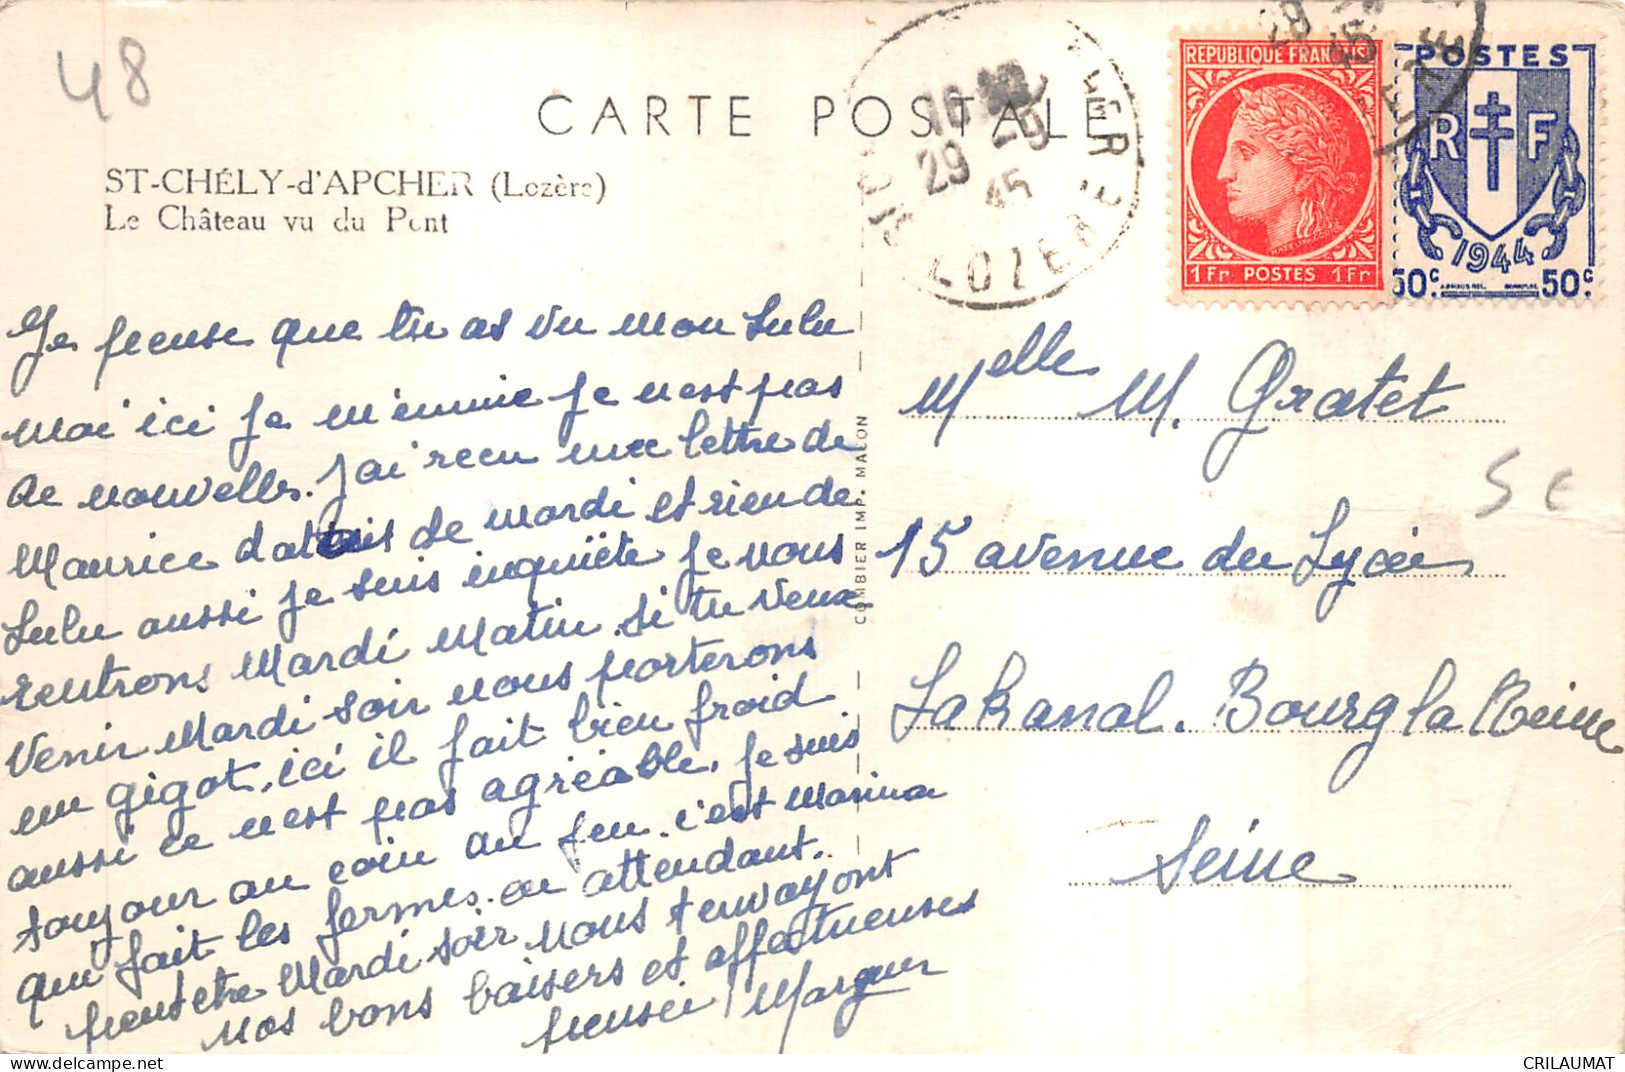 48
CARTE POSTALE
ST-CHÉLY-d'APCHER (Lozère)
Le Château vu du Pont
LOZERE
29 9
45
REPUBLIQUE FRANÇAISE
1Fr POSTES 1Fr
POSTES
R F
1944
50c 50c
Je pense que tu as vu mon Lulu
moi ici je m'ennuie je n'est pas
de nouvelles. J'ai recu une lettre de
Maurice de mardi et rien de
Lulu aussi je suis inquiète je nous
rentrons Mardi Matin. Si tu veux
venir Mardi soir nous porterons
un gigot, ici il fait bien froid
aussi ce n'est pas agréable. je suis
toujour au coin du feu. c'est maman
qui fait les fermes. en attendant.
peut etre Mardi soir nous t'envoyont
nos bons baisers et affectueuses
pensée Marguer
COMBIER IMP. MACON
Melle M. Gratet
15 avenue du Lycée
Lakanal. Bourg la Reine
Seine
5€
CRILAUMAT